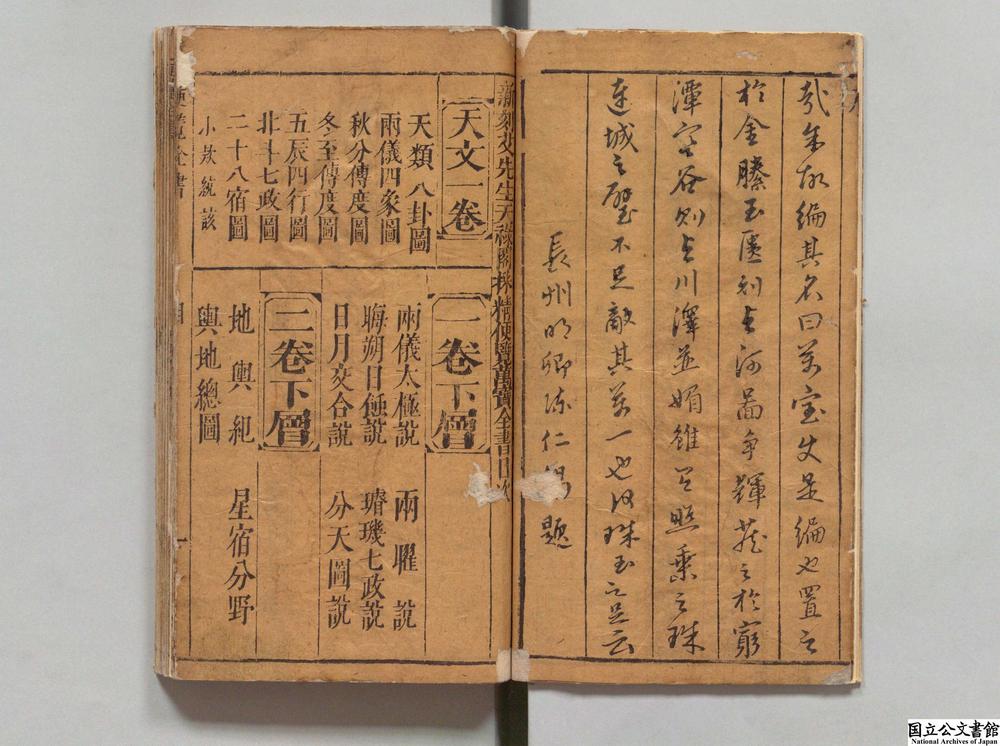 哉余故編其名曰萬宝夫是編也置之
於金縢玉匱則与河啚争輝蔵之於窮
潭空谷則与川澤並媚雖有照乗之珠
連城之璧不足敵其萬一也何珠玉之足云
長州明卿陳仁錫題
新刻艾先生天禄閣採精便覽萬寶全書目次
天文一卷
天類八卦圖
兩儀四象圖
秋分傳度圖
冬至傳度圖
五辰四行圖
北斗七政圖
二十八宿圖
小
統該
一卷下層
兩儀太極說 兩曜說
晦朔日蝕說 璿璣七政說
日月交合說 分天圖說
二卷下層
地輿紀 星宿分野
輿地總圖
便覽全書
目
国立公文書館
National Archives of Japan